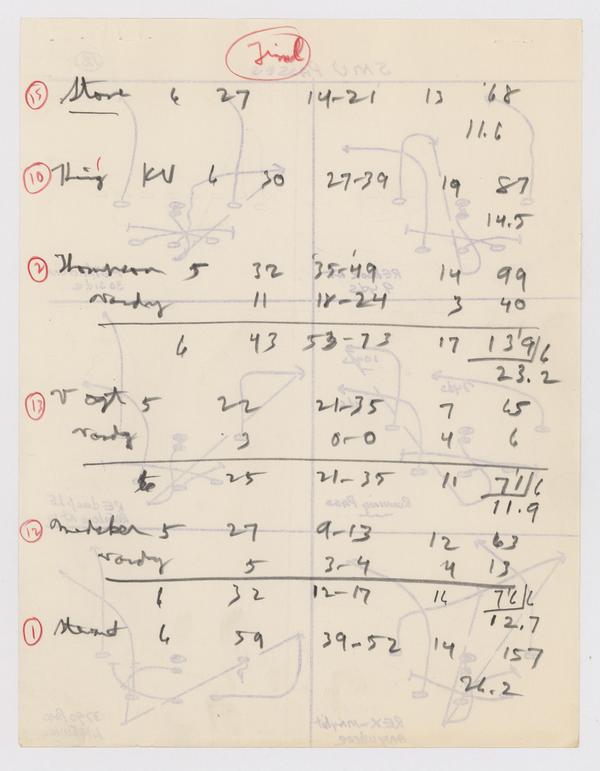 Final
15 Stone 6 27 14-21 13 68
11.6
10 King KU 6 30 27-39 19 87
14.5
2 Thompson 5 32 35-49 14 99
Vandy 11 18-24 3 40
6 43 53-73 17 139/6
23.2
13 Vogt 5 22 21-35 7 65
Vandy 3 0-0 4 6
6 25 21-35 11 71/6
11.9
12 5 27 9-13 12 63
Vandy 5 3-4 4 13
6 32 12-17 16 76/6
12.7
1 Stewart 6 59 39-52 14 157
26.2